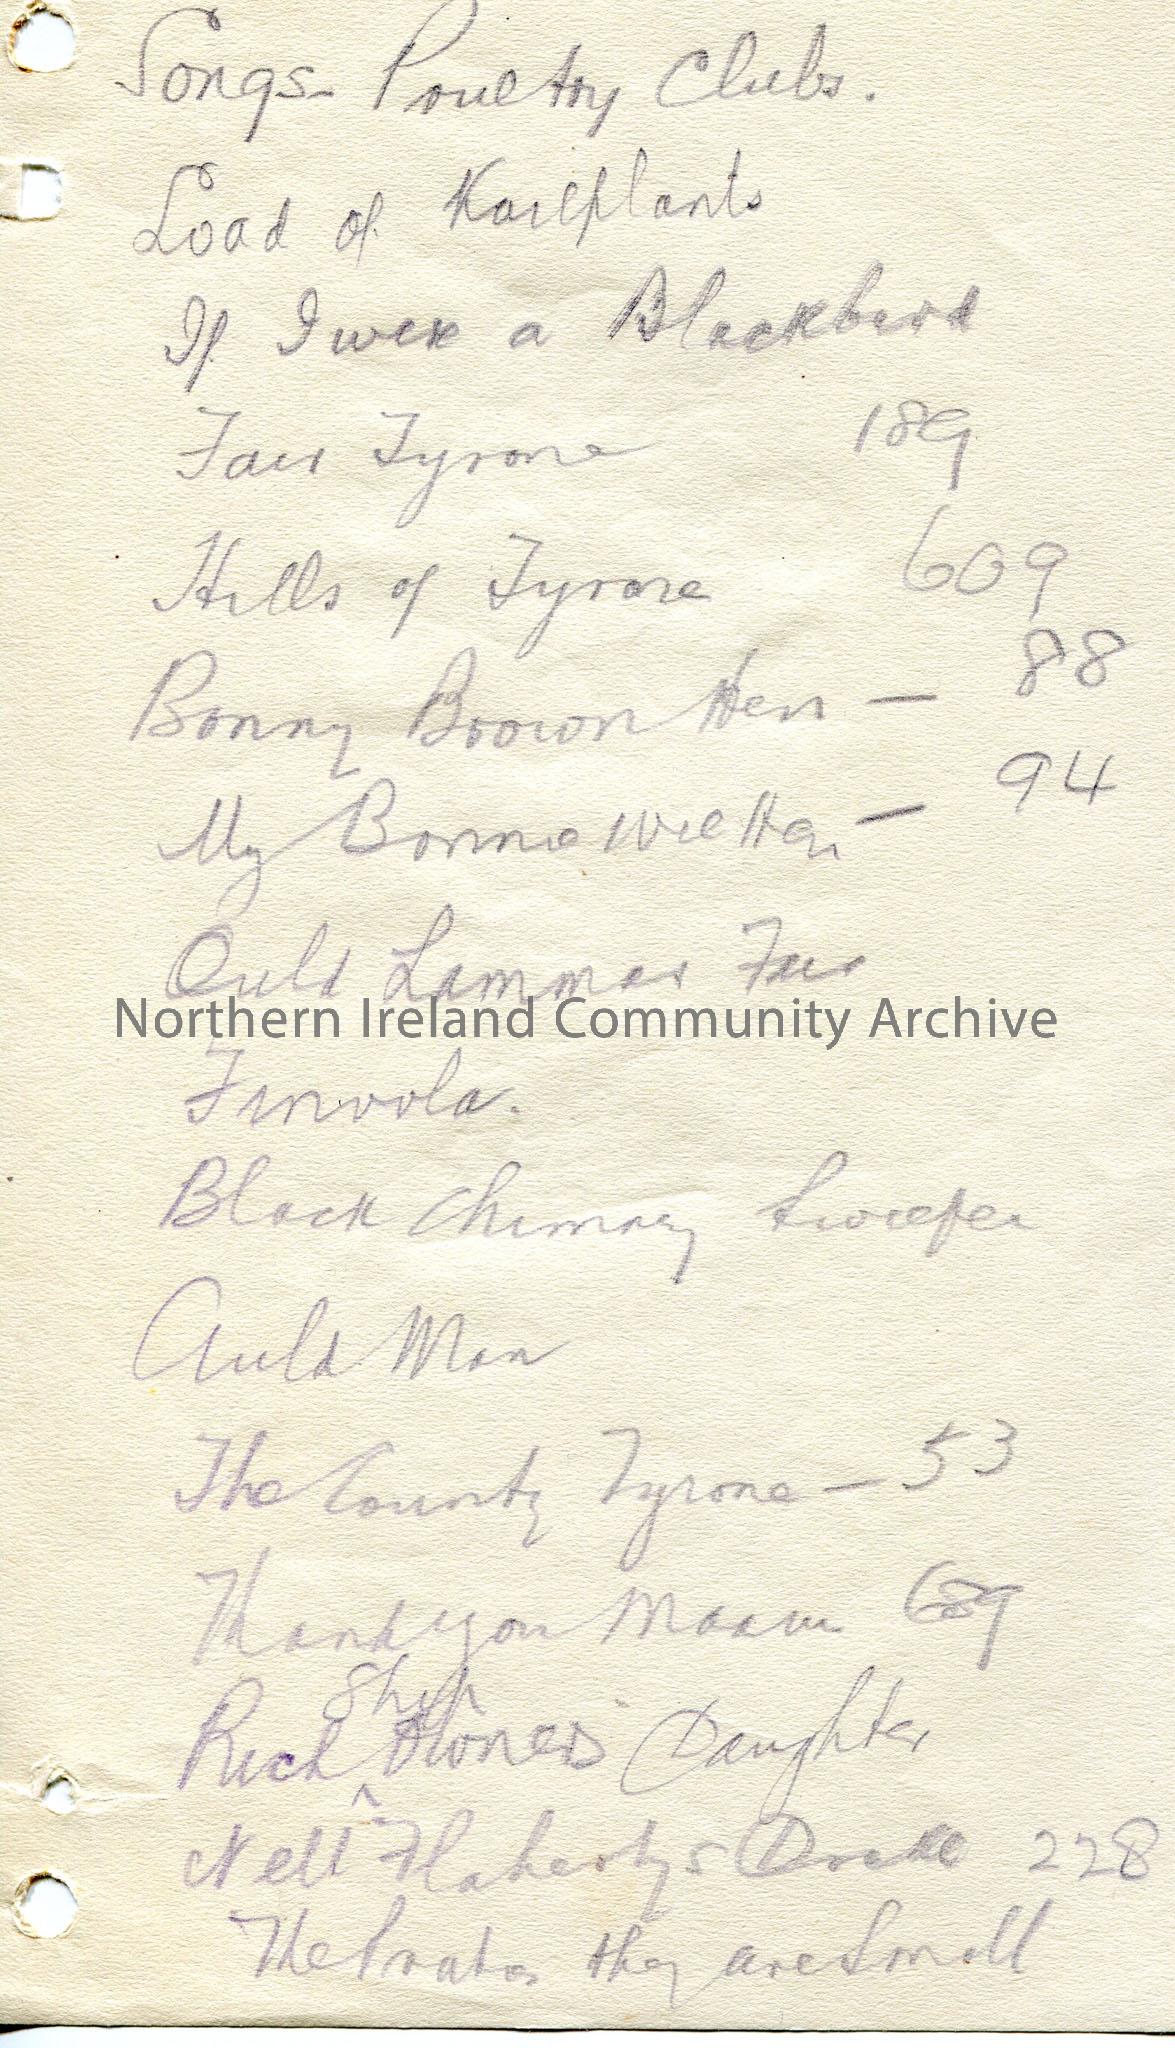 Songs - Poultry Clubs.
Load of Kailplants
If I were a Blackbird
Fair Tyrone 189
Hills of Tyrone 609
Bonny Brown Hen — 88
My Bonnie Wee Hen — 94
Auld Lammas Fair
Northern Ireland Community Archive
Finvola.
Black Chimney Sweeper
Auld Man
The County Tyrone — 53
Thank you Maam 689
Ship
Rich ^ Owner's Daughter
Nell Flaherty's Drake 228
The Praties they are Small